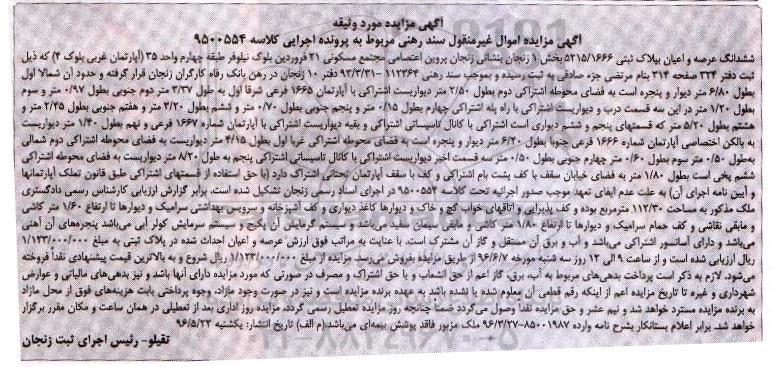 آگهی مزایده مورد وثیقه
آگهی مزایده اموال غیرمنقول سند رهنی مربوط به پرونده اجرایی کلاسه ۹۵۰۰۵۵۴
ششدانگ عرصه و اعیان پلاک ثبتی ۵۲۱۵/۱۶۶۶ بخش ۱ زنجان بنشانی زنجان پروین اعتصامی مجتمع مسکونی ۲۱ فروردین بلوک نیلوفر طبقه چهارم واحد ۳۵ (آپارتمان غربی بلوک ۴) که ذیل
ثبت دفتر ۳۲۴ صفحه ۳۱۴ بنام مرتضی جزء صادقی به ثبت رسیده و بموجب سند رهنی ۱۱۲۳۶۴-۹۳/۳/۳۱ دفتر ۱۰ زنجان در رهن بانک رفاه کارگران زنجان قرار گرفته و حدود آن شمالا اول
بطول ۶/۸۰ متر دیوار و پنجره است به فضای محوطه اشتراکی دوم بطول ۲/۵۰ متر دیواریست اشتراکی با آپارتمان ۱۶۶۵ فرعی شرقا اول به طول ۳/۳۷ متر دوم جنوبی بطول ۰/۹۷ متر و سوم
بطول ۱/۲۰ متر در این سه قسمت درب و دیواریست اشتراکی با راه پله اشتراکی چهارم بطول ۰/۱۵ متر و پنجم جنوبی بطول ۰/۷۰ متر و ششم بطول ۳/۲۰ متر و هفتم جنوبی بطول ۲/۴۵ متر و
هشتم بطول ۵/۲۰ متر که قسمتهای پنجم و ششم دیواری است اشتراکی با کانال تاسیساتی اشتراکی و بقیه دیواریست اشتراکی با آپارتمان شماره ۱۶۶۷ فرعی و نهم بطول ۱/۴۰ متر دیواریست
به بالکن اختصاصی آپارتمان شماره ۱۶۶۶ فرعی جنوبا بطول ۶/۲۰ متر دیوار و پنجره است به فضای محوطه اشتراکی غربا اول بطول ۴/۱۵ متر دیواریست به فضای محوطه اشتراکی دوم شمالی
به‌طول ۰/۵۰ متر سوم بطول ۰/۶۰ متر چهارم جنوبی بطول ۰/۵۰ متر سه قسمت اخیر دیواریست اشتراکی با کانال تاسیساتی اشتراکی پنجم به طول ۸/۲۰ متر دیواریست به فضای محوطه اشتراکی
ششم پخی است بطول ۱/۸۰ متر به فضای خیابان سقف با کف پشت بام اشتراکی و کف با سقف آپارتمان تحتانی اشتراک دارد (با حق استفاده از قسمتهای اشتراکی طبق قانون تملک آپارتمانها
و آیین نامه اجرای آن) به علت عدم ایفای تعهد موجب صدور اجرائیه تحت کلاسه ۹۵۰۰۵۵۴ در اجرای اسناد رسمی زنجان تشکیل شده است، برابر گزارش ارزیابی کارشناس رسمی دادگستری
ملک مذکور به مساحت ۱۱۲/۳۰ مترمربع بوده و کف پذیرایی و اتاقهای خواب گچ و خاک و دیوارها کاغذ دیواری و کف آشپزخانه و سرویس بهداشتی سرامیک و دیوارها تا ارتفاع ۱/۶۰ متر کاشی
و مابقی نقاشی و کف حمام سرامیک و دیوارها تا ارتفاع ۱/۸۰ متر کاشی و مابقی سیمان سفید می‌باشد و سیستم گرمایش آن پکیج و سیستم سرمایش کولر آبی می‌باشد پنجره‌های آن آهنی
می‌باشد و دارای آسانسور اشتراکی می‌باشد و آب و برق آن مستقل و گاز آن مشترک است. با عنایت به مراتب فوق ارزش عرصه و اعیان احداث شده در پلاک ثبتی به مبلغ ۱/۱۲۳/۰۰۰/۰۰۰
ریال ارزیابی شده است و از ساعت ۹ الی ۱۲ روز سه شنبه مورخه ۹۶/۶/۷ از طریق مزایده بفروش می‌رسد مزایده از مبلغ ۱/۱۲۳/۰۰۰/۰۰۰ ریال شروع و به بالاترین قیمت پیشنهادی نقدا فروخته
می‌شود، لازم به ذکر است پرداخت بدهی‌های مربوط به آب، برق، گاز اعم از حق انشعاب و یا حق اشتراک و مصرف در صورتی که مورد مزایده دارای آنها باشد و نیز بدهی‌های مالیاتی و عوارض
شهرداری و غیره تا تاریخ مزایده اعم از اینکه رقم قطعی آن معلوم شده یا نشده باشد به عهده برنده مزایده است و نیز در صورت وجود مازاد، وجوه پرداختی بابت هزینه‌های فوق از محل مازاد
به برنده مزایده مسترد خواهد شد و نیم عشر و حق مزایده نقدا وصول می‌گردد ضمنا چنانچه روز مزایده تعطیل رسمی گردد، مزایده روز اداری بعد از تعطیلی در همان ساعت و مکان مقرر برگزار
خواهد شد. برابر اعلام بستانکار بشرح نامه وارده ۸۵۰۰۱۹۸۷-۹۶/۳/۲۷ ملک مزبور فاقد پوشش بیمه‌ای می‌باشد.(م الف) تاریخ انتشار: یکشنبه ۹۶/۵/۲۲
تقیلو- رئیس اجرای ثبت زنجان